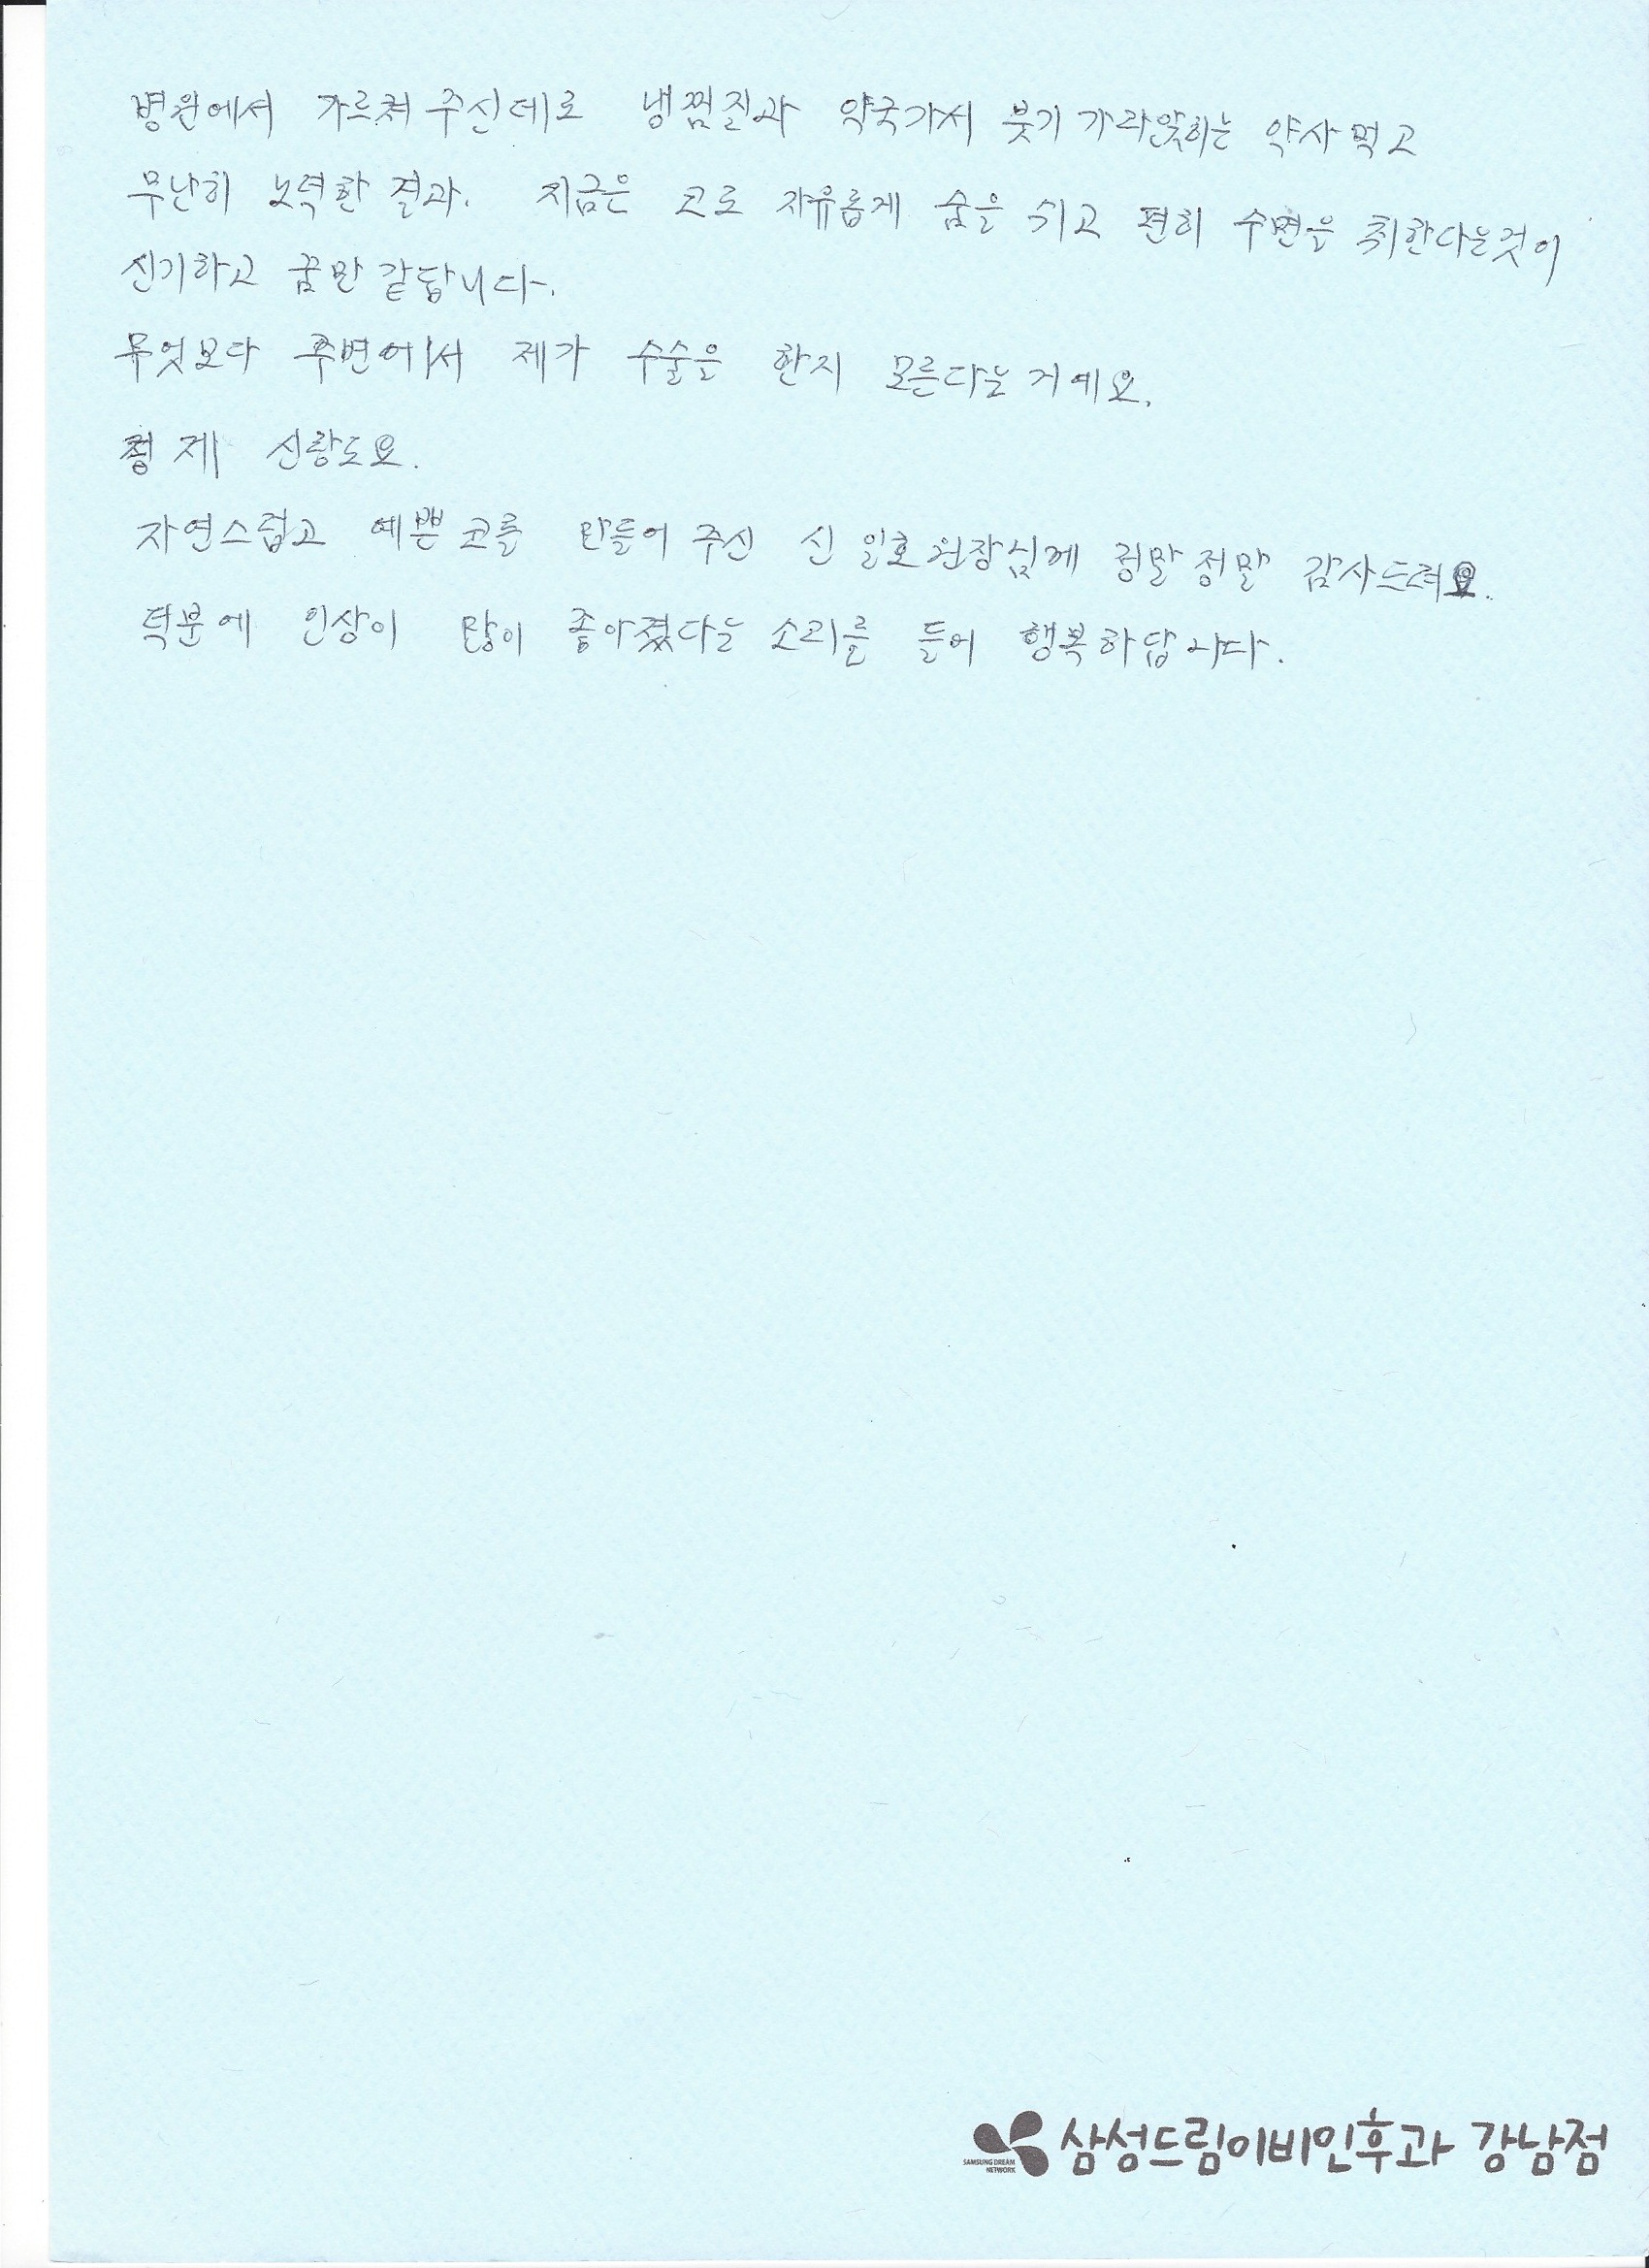 병원에서 가르쳐 주신데로 냉찜질과 약국가서 붓기 가라앉히는 약사먹고
무난히 노력한 결과. 지금은 코로 자유롭게 숨을 쉬고 편히 수면을 취한다는것이
신기하고 꿈만 같답니다.
무엇보다 주변에서 제가 수술을 한지 모른다는거예요.
제 신랑도요.
자연스럽고 예쁜 코를 만들어 주신 신일호원장님께 정말정말 감사드려요.
덕분에 인상이 많이 좋아졌다는 소리를 들어 행복하답니다.
SAMSUNG DREAM
NETWORK
삼성드림이비인후과 강남점